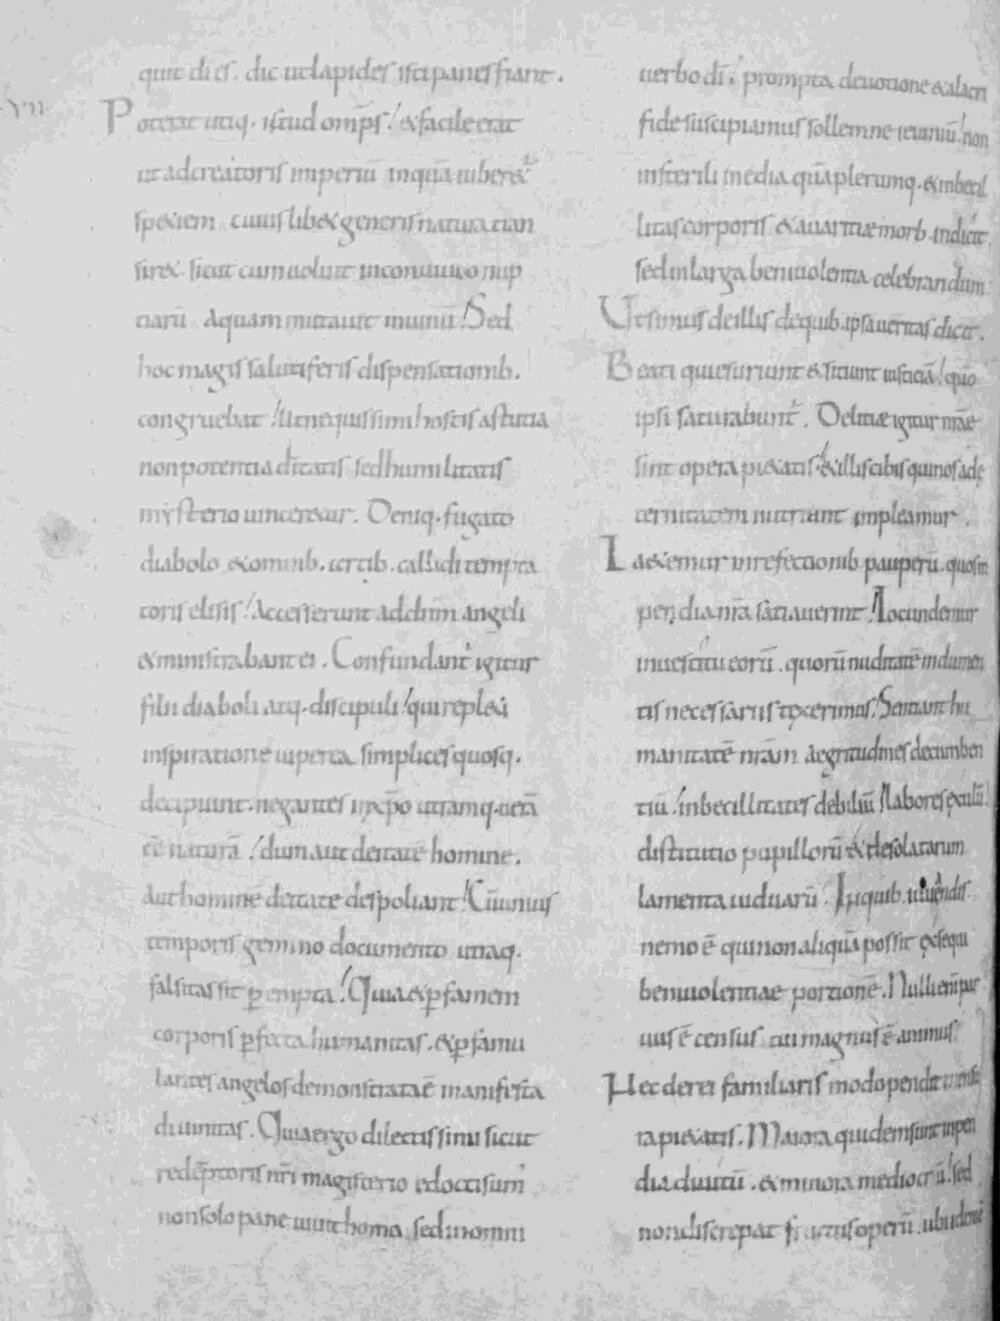 quit di es. dic ut lapides isti panes fiant.
·VII·
Poterat utiq· istud omp̄s! & facile erat
ut ad creatoris imperiū in quā iuber&ur
speciem cuiuslib& generis natura tran
sir&. sicut cum uoluit in conuiuio nup
tiarū Aquam mutauit in uinū! Sed
hoc magis salutiferis dispensationib.
congruebat! Ut nequissimi hostis astutia
non potentia dītatis sed humilitatis
mysterio uincer&ur. Deniq· fugato
diabolo & omnib. artib. callidi tempta
toris elisis! Accesserunt ad dn̄m angeli
& ministrabant ei. Confundant igitur
filii diaboli atq· discipuli! qui repl&i
inspiratione uiperea simplices quosq·
decipiunt. negantes in xp̄o utramq· uerā
eē naturā! dum aut deitatē homine.
Aut hominē deitate despoliant! Cū unius
temporis gemino documento utraq·
falsitas sit pempta! Quia & p famem
corporis pfecta humanitas. & p famu
lantes angelos demonstrata ē manifesta
diuinitas. Quia ergo dilectissimi sicut
redēptoris nr̄i magisterio edocti sum'
non solo pane uiuit homo sed in omni
uerbo dī! prompta deuotione & alacri
fide suscipiamus sollemne ieiuniū! non
in sterili inedia quā plerumq· & inbecil
litas corporis & auaritiae morb. indicit
sed in larga beniuolentia celebrandum
Ut simus de illis de quib. ipsa ueritas dicit.
Beati qui esuriunt & sitiunt iusticiā! quō
ipsi saturabunt'. Delitiae igitur nr̄ae
sint opera pi&atis. & illis cibis qui nos ad ae
ternitatem nutriunt impleamur.
La&emur in refectionib. pauperū. quos in
pendia nr̄a satiauerint! Iocundemur
in uestitu eorū. quorū nuditatē indumen
tis necessariis texerimus! Sentiant hu
manitatē nr̄am aegritudines decumben
tiū! inbecillitates debiliū! labores exulū!
distitutio pupillorū & desolatarum
lamenta uiduarū! In quib. iuuandis
nemo ē qui non aliquā possit exsequi
beniuolentiae portionē. Nulli enī par
uus ē census cui magnus ē animus!
Nec de rei familiaris modo pendet mensu
ra pi&atis. Maiora quidem sunt inpen
dia diuitū. & minora mediocrū! sed
non discrepat fructus operū. ubi idem ē